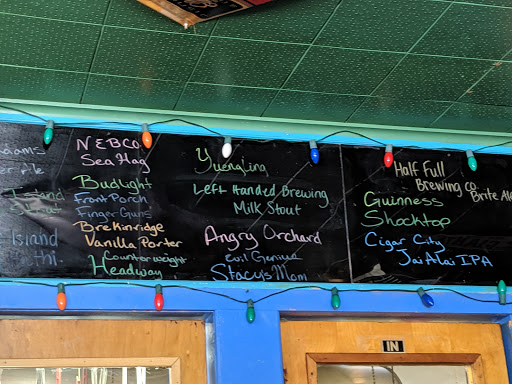 NEBCO
Sea Hag
Budlight
Front Porch
Finger Guns
Breckinridge
Vanilla Porter
Counterweight
Headway
Island
Island
Yuengling
Left Handed Brewing
Milk Stout
Angry Orchard
Evil Genius
Stacy's Mom
Half Full
Brewing Co.
Brite Ale
Guinness
Shocktop
Cigar City
Jai Alai IPA
IN